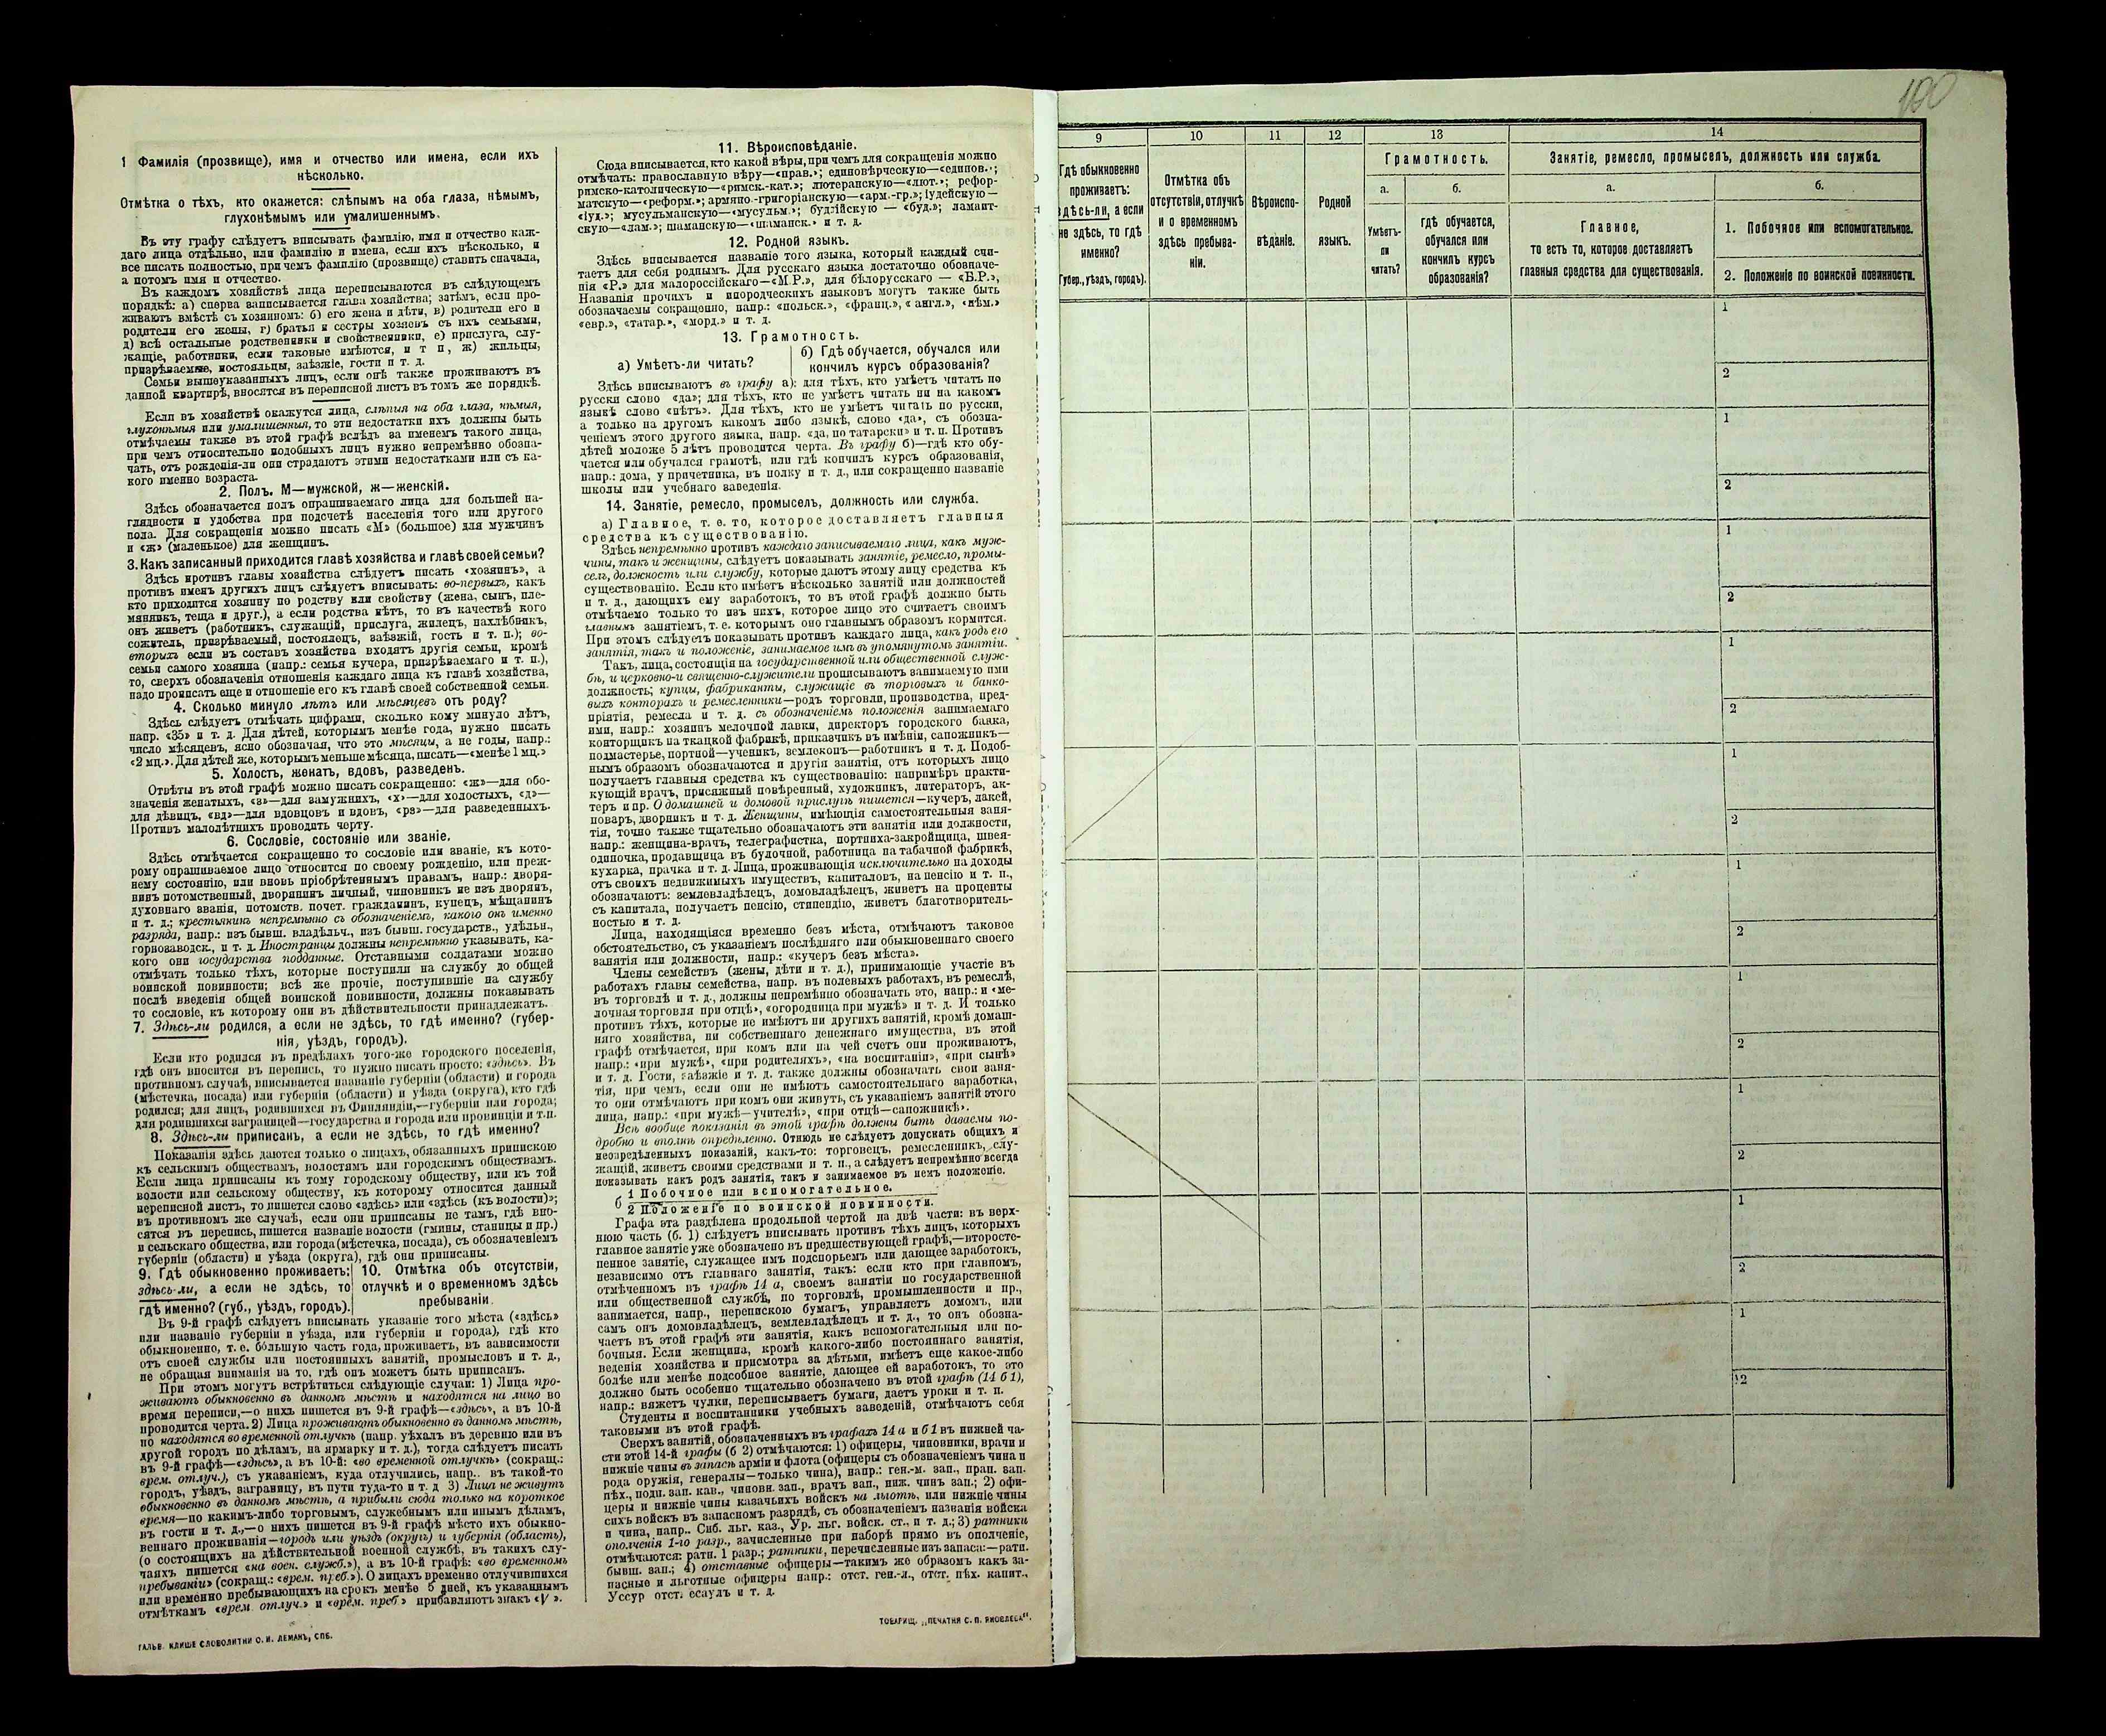 1 Фамилія (прозвище), имя и отчество или имена, если ихъ
нѣсколько.
Отмѣтка о тѣхъ, кто окажется: слѣпымъ на оба глаза, нѣмымъ,
глухонѣмымъ или умалишеннымъ.
Въ эту графу слѣдуетъ вписывать фамилію, имя и отчество каж-
даго лица отдѣльно, или фамилію и имена, если ихъ нѣсколько, и
все писать полностью, при чемъ фамилію (прозвище) ставить сначала,
а потомъ имя и отчество.
Въ каждомъ хозяйствѣ лица переписываются въ слѣдующемъ
порядкѣ: а) сперва записывается глава хозяйства; затѣмъ, если про-
живаютъ вмѣстѣ съ хозяиномъ: б) его жена и дѣти, в) родители его и
родители его жены, г) братья и сестры хозяевъ съ ихъ семьями,
д) всѣ остальные родственники и свойственники, е) прислуга, слу-
жащіе, работники, если таковые имѣются, и т п, ж) жильцы,
призрѣваемые, постояльцы, заѣзжіе, гости и т. д.
Семьи вышеуказанныхъ лицъ, если онѣ также проживаютъ въ
данной квартирѣ, вносятся въ переписной листъ въ томъ же порядкѣ.
Если въ хозяйствѣ окажутся лица, слѣпыя на оба глаза, нѣмыя,
глухонѣмыя или умалишенныя, то эти недостатки ихъ должны быть
отмѣчаемы также въ этой графѣ вслѣдъ за именемъ такого лица,
при чемъ относительно подобныхъ лицъ нужно непремѣнно обозна-
чать, отъ рожденія-ли они страдаютъ этими недостатками или съ ка-
кого именно возраста.
2. Полъ. М—мужской, ж—женскій.
Здѣсь обозначается полъ опрашиваемаго лица для большей на-
глядности и удобства при подсчетѣ населенія того или другого
пола. Для сокращенія можно писать «М» (большое) для мужчинъ
и «ж» (маленькое) для женщинъ.
3. Какъ записанный приходится главѣ хозяйства и главѣ своей семьи?
Здѣсь противъ главы хозяйства слѣдуетъ писать «хозяинъ», а
противъ именъ другихъ лицъ слѣдуетъ вписывать: во-первыхъ, какъ
кто приходится хозяину по родству или свойству (жена, сынъ, пле-
мянникъ, теща и друг.), а если родства нѣтъ, то въ качествѣ кого
онъ живетъ (работникъ, служащій, прислуга, жилецъ, нахлѣбникъ,
сожитель, призрѣваемый, постоялецъ, заѣзжій, гость и т. п.); во-
вторыхъ если въ составъ хозяйства входятъ другія семьи, кромѣ
семьи самого хозяина (напр.: семья кучера, призрѣваемаго и т. п.),
то, сверхъ обозначенія отношенія каждаго лица къ главѣ хозяйства,
надо прописать еще и отношеніе его къ главѣ своей собственной семьи.
4. Сколько минуло лѣтъ или мѣсяцевъ отъ роду?
Здѣсь слѣдуетъ отмѣчать цифрами, сколько кому минуло лѣтъ,
напр. «35» и т. д. Для дѣтей, которымъ менѣе года, нужно писать
число мѣсяцевъ, ясно обозначая, что это мѣсяцы, а не годы, напр.:
«2 мц.». Для дѣтей же, которымъ меньше мѣсяца, писать—«менѣе 1 мц.»
5. Холостъ, женатъ, вдовъ, разведенъ.
Отвѣты въ этой графѣ можно писать сокращенно: «ж»—для обо-
значенія женатыхъ, «з»—для замужнихъ, «х»—для холостыхъ, «д»—
для дѣвицъ, «вд»—для вдовцовъ и вдовъ, «рз»—для разведенныхъ.
Противъ малолѣтнихъ проводить черту.
6. Сословіе, состояніе или званіе.
Здѣсь отмѣчается сокращенно то сословіе или званіе, къ кото-
рому опрашиваемое лицо относится по своему рожденію, или преж-
нему состоянію, или вновь пріобрѣтеннымъ правамъ, напр.: дворя-
нинъ потомственный, дворянинъ личный, чиновникъ не изъ дворянъ,
духовнаго званія, потомств. почет. гражданинъ, купецъ, мѣщанинъ
и т. д.; крестьянинъ непремѣнно съ обозначеніемъ, какого онъ именно
разряда, напр.: изъ бывш. владѣльч., изъ бывш. государств., удѣльн.,
горнозаводск., и т. д. Иностранцы должны непремѣнно указывать, ка-
кого они государства подданные. Отставными солдатами можно
отмѣчать только тѣхъ, которые поступили на службу до общей
воинской повинности; всѣ же прочіе, поступившіе на службу
послѣ введенія общей воинской повинности, должны показывать
то сословіе, къ которому они въ дѣйствительности принадлежатъ.
7. Здѣсь-ли родился, а если не здѣсь, то гдѣ именно? (губер-
нія, уѣздъ, городъ).
Если кто родился въ предѣлахъ того-же городского поселенія,
гдѣ онъ вносится въ перепись, то нужно писать просто: «здѣсь». Въ
противномъ случаѣ, вписывается названіе губерніи (области) и города
(мѣстечка, посада) или губерніи (области) и уѣзда (округа), кто гдѣ
родился; для лицъ, родившихся въ Финляндіи,—губерніи или города;
для родившихся заграницей—государства и города или провинціи и т.п.
8. Здѣсь-ли приписанъ, а если не здѣсь, то гдѣ именно?
Показанія здѣсь даются только о лицахъ, обязанныхъ припискою
къ сельскимъ обществамъ, волостямъ или городскимъ обществамъ.
Если лица приписаны къ тому городскому обществу, или къ той
волости или сельскому обществу, къ которому относится данный
переписной листъ, то пишется слово «здѣсь» или «здѣсь (къ волости)»;
въ противномъ же случаѣ, если они приписаны не тамъ, гдѣ вно-
сятся въ перепись, пишется названіе волости (гмины, станицы и пр.)
и сельскаго общества, или города (мѣстечка, посада), съ обозначеніемъ
губерніи (области) и уѣзда (округа), гдѣ они приписаны.
9. Гдѣ обыкновенно проживаетъ:
здѣсь-ли, а если не здѣсь, то
гдѣ именно? (губ., уѣздъ, городъ).
10. Отмѣтка объ отсутствіи,
отлучкѣ и о временномъ здѣсь
пребываніи.
Въ 9-й графѣ слѣдуетъ вписывать указаніе того мѣста («здѣсь»
или названіе губерніи и уѣзда, или губерніи и города), гдѣ кто
обыкновенно, т. е. бо́льшую часть года, проживаетъ, въ зависимости
отъ своей службы или постоянныхъ занятій, промысловъ и т. д.,
не обращая вниманія на то, гдѣ онъ можетъ быть приписанъ.
При этомъ могутъ встрѣтиться слѣдующіе случаи: 1) Лица про-
живаютъ обыкновенно въ данномъ мѣстѣ и находятся на лицо во
время переписи,—о нихъ пишется въ 9-й графѣ—«здѣсь», а въ 10-й
проводится черта. 2) Лица проживаютъ обыкновенно въ данномъ мѣстѣ,
но находятся во временной отлучкѣ (напр. уѣхалъ въ деревню или въ
другой городъ по дѣламъ, на ярмарку и т. д.), тогда слѣдуетъ писать
въ 9-й графѣ—«здѣсь», а въ 10-й: «во временной отлучкѣ» (сокращ.:
врем. отлуч.), съ указаніемъ, куда отлучились, напр.. въ такой-то
городъ, уѣздъ, заграницу, въ пути туда-то и т. д 3) Лица не живутъ
обыкновенно въ данномъ мѣстѣ, а прибыли сюда только на короткое
время—по какимъ-либо торговымъ, служебнымъ или инымъ дѣламъ,
въ гости и т. д.,—о нихъ пишется въ 9-й графѣ мѣсто ихъ обыкно-
веннаго проживанія—городъ или уѣздъ (округъ) и губернія (область),
(о состоящихъ на дѣйствительной военной службѣ, въ такихъ слу-
чаяхъ пишется «на воен. служб.»), а въ 10-й графѣ: «во временномъ
пребываніи» (сокращ.: «врем. преб.»). О лицахъ временно отлучившихся
или временно пребывающихъ на срокъ менѣе 5 дней, къ указаннымъ
отмѣткамъ «врем. отлуч.» и «врем. преб.» прибавляютъ знакъ «V».
ГАЛЬВ. КЛИШЕ СЛОВОЛИТНИ О. И. ЛЕМАНЪ, СПБ.
11. Вѣроисповѣданіе.
Сюда вписывается, кто какой вѣры, при чемъ для сокращенія можно
отмѣчать: православную вѣру—«прав.»; единовѣрческую—«единов.»;
римско-католическую—«римск.-кат.»; лютеранскую—«лют.»; рефор-
матскую—«реформ.»; армяно.-григоріанскую—«арм.-гр.»; іудейскую—
«іуд.»; мусульманскую—«мусульм.»; буддійскую — «буд.»; ламаит-
скую—«лам.»; шаманскую—«шаманск.» и т. д.
12. Родной языкъ.
Здѣсь вписывается названіе того языка, который каждый счи-
таетъ для себя роднымъ. Для русскаго языка достаточно обозначе-
нія «Р.» для малороссійскаго—«М.Р.», для бѣлорусскаго — «Б.Р.»,
Названія прочихъ и инородческихъ языковъ могутъ также быть
обозначаемы сокращенно, напр.: «польск.», «франц.», « англ.», «нѣм.»
«евр.», «татар.», «морд.» и т. д.
13. Грамотность.
а) Умѣетъ-ли читать?
б) Гдѣ обучается, обучался или
кончилъ курсъ образованія?
Здѣсь вписываютъ въ графу а): для тѣхъ, кто умѣетъ читать по
русски слово «да»; для тѣхъ, кто не умѣетъ читать ни на какомъ
языкѣ слово «нѣтъ». Для тѣхъ, кто не умѣетъ читать по русски,
а только на другомъ какомъ либо языкѣ, слово «да», съ обозна-
ченіемъ этого другого языка, напр. «да, по татарски» и т. п. Противъ
дѣтей моложе 5 лѣтъ проводится черта. Въ графу б)—гдѣ кто обу-
чается или обучался грамотѣ, или гдѣ кончилъ курсъ образованія,
напр.: дома, у причетника, въ полку и т. д., или сокращенно названіе
школы или учебнаго заведенія.
14. Занятіе, ремесло, промыселъ, должность или служба.
а) Главное, т. е. то, которое доставляетъ главныя
средства къ существованію.
Здѣсь непремѣнно противъ каждаго записываемаго лица, какъ муж-
чины, такъ и женщины, слѣдуетъ показывать занятіе, ремесло, промы-
селъ, должность или службу, которые даютъ этому лицу средства къ
существованію. Если кто имѣетъ нѣсколько занятій или должностей
и т. д., дающихъ ему заработокъ, то въ этой графѣ должно быть
отмѣчаемо только то изъ нихъ, которое лицо это считаетъ своимъ
главнымъ занятіемъ, т. е. которымъ оно главнымъ образомъ кормится.
При этомъ слѣдуетъ показывать противъ каждаго лица, какъ родъ его
занятія, такъ и положеніе, занимаемое имъ въ упомянутомъ занятіи.
Такъ, лица, состоящія на государственной или общественной служ-
бѣ, и церковно-и священно-служители прописываютъ занимаемую ими
должность; купцы, фабриканты, служащіе въ торговыхъ и банко-
выхъ конторахъ и ремесленники—родъ торговли, производства, пред-
пріятія, ремесла и т. д. съ обозначеніемъ положенія занимаемаго
ими, напр.: хозяинъ мелочной лавки, директоръ городского банка,
конторщикъ на ткацкой фабрикѣ, приказчикъ въ имѣніи, сапожникъ—
подмастерье, портной—ученикъ, землекопъ—работникъ и т. д. Подоб-
нымъ образомъ обозначаются и другія занятія, отъ которыхъ лицо
получаетъ главныя средства къ существованію: напримѣръ практи-
кующій врачъ, присяжный повѣренный, художникъ, литераторъ, ак-
теръ и пр. О домашней и домовой прислугѣ пишется—кучеръ, лакей,
поваръ, дворникъ и т. д. Женщины, имѣющія самостоятельныя заня-
тія, точно также тщательно обозначаютъ эти занятія или должности,
напр.: женщина-врачъ, телеграфистка, портниха-закройщица, швея-
одиночка, продавщица въ булочной, работница на табачной фабрикѣ,
кухарка, прачка и т. д. Лица, проживающія исключительно на доходы
отъ своихъ недвижимыхъ имуществъ, капиталовъ, на пенсію и т. п.,
обозначаютъ: землевладѣлецъ, домовладѣлецъ, живетъ на проценты
съ капитала, получаетъ пенсію, стипендію, живетъ благотворитель-
ностью и т. д.
Лица, находящіяся временно безъ мѣста, отмѣчаютъ таковое
обстоятельство, съ указаніемъ послѣдняго или обыкновеннаго своего
занятія или должности, напр.: «кучеръ безъ мѣста».
Члены семействъ (жены, дѣти и т. д.), принимающіе участіе въ
работахъ главы семейства, напр. въ полевыхъ работахъ, въ ремеслѣ,
въ торговлѣ и т. д., должны непремѣнно обозначать это, напр.: и «ме-
лочная торговля при отцѣ», «огородница при мужѣ» и т. д. И только
противъ тѣхъ, которые не имѣютъ ни другихъ занятій, кромѣ домаш-
няго хозяйства, ни собственнаго денежнаго имущества, въ этой
графѣ отмѣчается, при комъ или на чей счетъ они проживаютъ,
напр.: «при мужѣ», «при родителяхъ», «на воспитаніи», «при сынѣ»
и т. д. Гости, заѣзжіе и т. д. также должны обозначать свои заня-
тія, при чемъ, если они не имѣютъ самостоятельнаго заработка,
то они отмѣчаютъ при комъ они живутъ, съ указаніемъ занятій этого
лица, напр.: «при мужѣ—учителѣ», «при отцѣ—сапожникѣ».
Всѣ вообще показанія въ этой графѣ должны быть даваемы по-
дробно и вполнѣ опредѣленно. Отнюдь не слѣдуетъ допускать общихъ и
неопредѣленныхъ показаній, какъ-то: торговецъ, ремесленникъ, слу-
жащій, живетъ своими средствами и т. п., а слѣдуетъ непремѣнно всегда
показывать какъ родъ занятія, такъ и занимаемое въ немъ положеніе.
б
1 Побочное или вспомогательное.
2 Положеніе по воинской повинности.
Графа эта раздѣлена продольной чертой на двѣ части: въ верх-
нюю часть (б. 1) слѣдуетъ вписывать противъ тѣхъ лицъ, которыхъ
главное занятіе уже обозначено въ предшествующей графѣ,—второсте-
пенное занятіе, служащее имъ подспорьемъ или дающее заработокъ,
независимо отъ главнаго занятія, такъ: если кто при главномъ,
отмѣченномъ въ графѣ 14 а, своемъ занятіи по государственной
или общественной службѣ, по торговлѣ, промышленности и пр.,
занимается, напр., перепискою бумагъ, управляетъ домомъ, или
самъ онъ домовладѣлецъ, землевладѣлецъ и т. д., то онъ обозна-
чаетъ въ этой графѣ эти занятія, какъ вспомогательныя или по-
бочныя. Если женщина, кромѣ какого-либо постояннаго занятія,
веденія хозяйства и присмотра за дѣтьми, имѣетъ еще какое-либо
болѣе или менѣе подсобное занятіе, дающее ей заработокъ, то это
должно быть особенно тщательно обозначено въ этой графѣ (14 б 1),
напр.: вяжетъ чулки, переписываетъ бумаги, даетъ уроки и т. п.
Студенты и воспитанники учебныхъ заведеній, отмѣчаютъ себя
таковыми въ этой графѣ.
Сверхъ занятій, обозначенныхъ въ графахъ 14 а и б 1 въ нижней ча-
сти этой 14-й графы (б 2) отмѣчаются: 1) офицеры, чиновники, врачи и
нижніе чины въ запасѣ арміи и флота (офицеры съ обозначеніемъ чина и
рода оружія, генералы—только чина), напр.: ген.-м. зап., прап. зап.
пѣх., подп. зап. кав., чиновн. зап., врачъ зап., ниж. чинъ зап.; 2) офи-
церы и нижніе чины казачьихъ войскъ на льготѣ, или нижніе чины
сихъ войскъ въ запасномъ разрядѣ, съ обозначеніемъ названія войска
и чина, напр.. Сиб. льг. каз., Ур. льг. войск. ст., и т. д.; 3) ратники
ополченія 1-го разр., зачисленные при наборѣ прямо въ ополченіе,
отмѣчаются: ратн. 1 разр.; ратники, перечисленные изъ запаса:—ратн.
бывш. зап.; 4) отставные офицеры—такимъ же образомъ какъ за-
пасные и льготные офицеры напр.: отст. ген.-л., отст. пѣх. капит.,
Уссур отст. есаулъ и т. д.
ТОВАРИЩ. „ПЕЧАТНЯ С. П. ЯКОВЛЕВА".
100
9
10
11
12
13
14
Гдѣ обыкновенно
проживаетъ:
здѣсь-ли, а если
не здѣсь, то гдѣ
именно?
(Губер., уѣздъ, городъ).
Отмѣтка объ
отсутствіи, отлучкѣ
и о временномъ
здѣсь пребыва-
ніи.
Вѣроиспо-
вѣданіе.
Родной
языкъ.
Грамотность.
а.
б.
Умѣетъ-
ли
читать?
гдѣ обучается,
обучался или
кончилъ курсъ
образованія?
Занятіе, ремесло, промыселъ, должность или служба.
а.
б.
Главное,
то есть то, которое доставляетъ
главныя средства для существованія.
1. Побочное или вспомогательное.
2. Положеніе по воинской повинности.
1
2
1
2
1
2
1
2
1
2
1
2
1
2
1
2
1
2
1
2